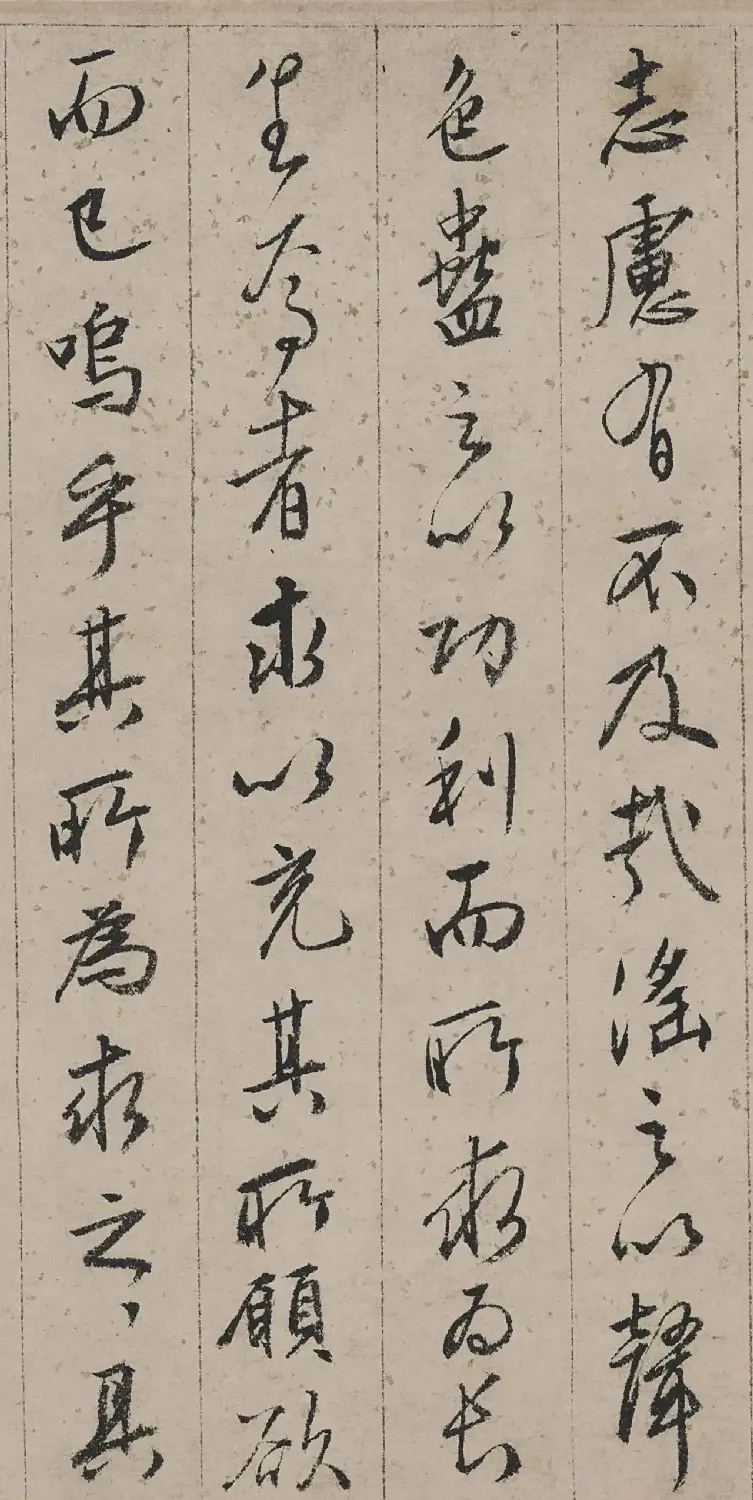 志慮有不及哉滛之以聲
色蠱之以功利而所求為長
生焉者求以充其所願欲
而已嗚乎其所為求之々具